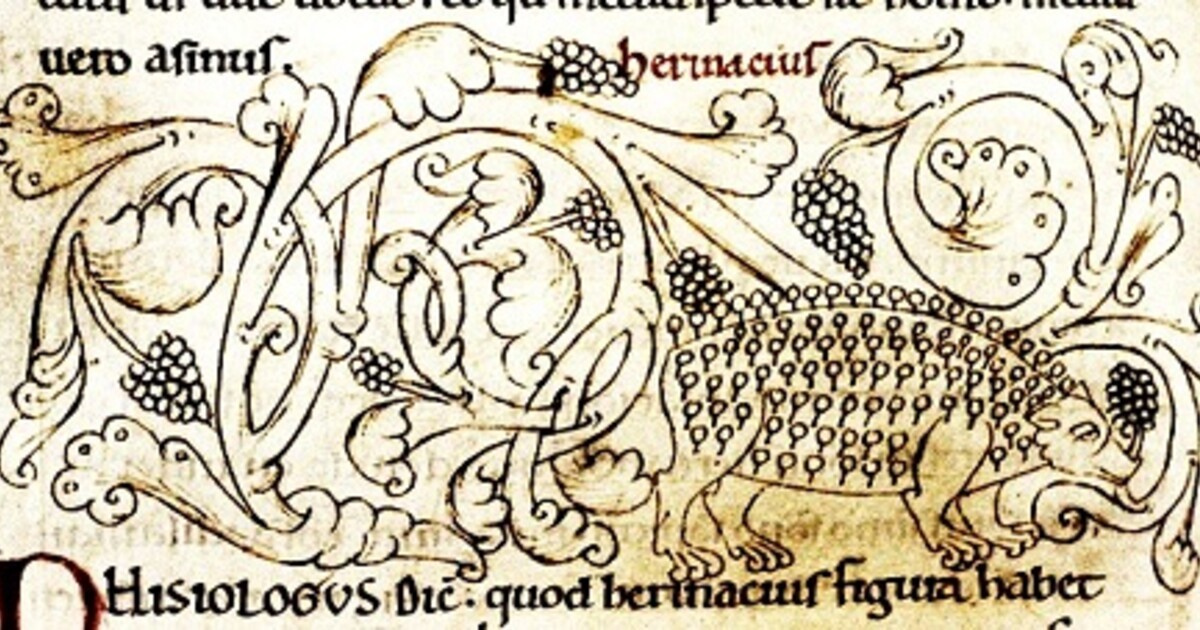 uero asinus.
herinacius
PHISIOLOGUS Dic̄. quod herinacius figura habet